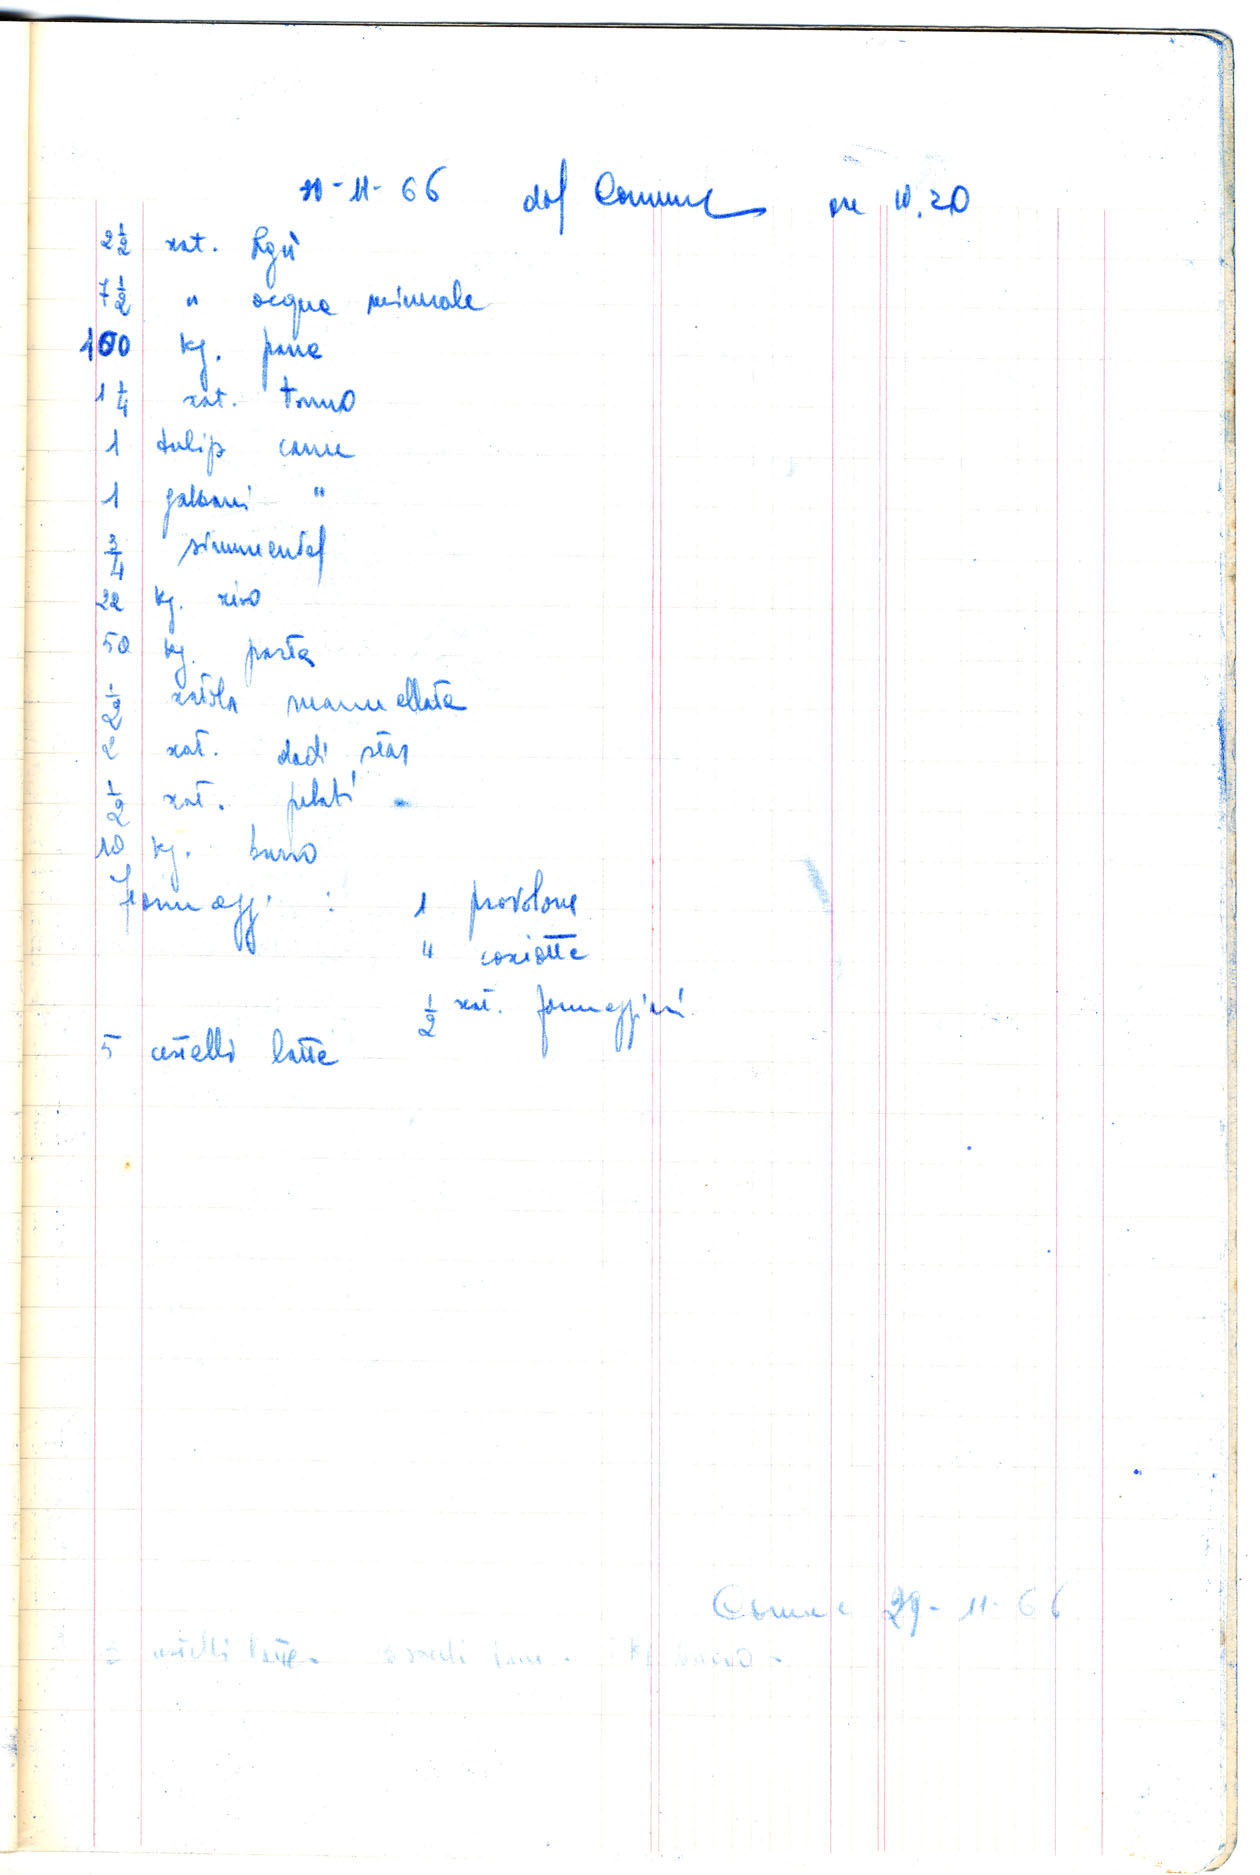 20-11-66 dal Comune ore 10,20
2 1/2 scat. Ragù
7 1/2 " acqua minerale
100 kg. pane
1 1/4 scat. tonno
1 tulip carne
1 galbani "
3/4 simmental
22 kg. riso
50 kg. pasta
2 1/2 scatola marmellata
2 scat. dadi star
2 1/2 scat. pelati
10 kg. burro
formaggi : 1 provolone
" caciotte
1/2 scat. formaggini
5 cestelli latte
Comune 29-11-66
cestelli latte